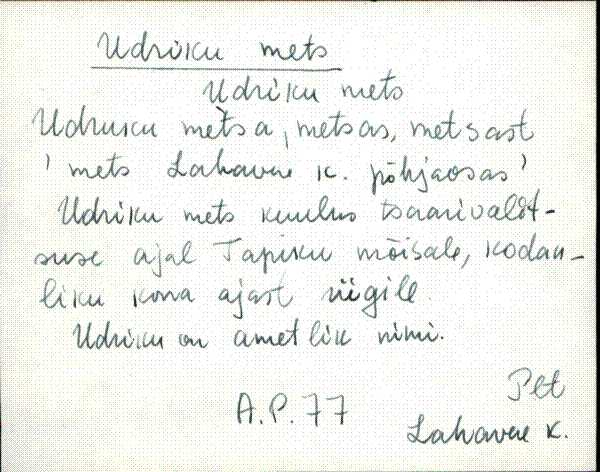 Udriku mets
Udriku mets
Udriku mètsa, metsas, metsast
' mets Lahavere k. põhjaosas '
Udriku mets kuulus tsaarivalit-
suse ajal Tapiku mõisale, kodan-
liku korra ajast riigile.
Udriku on ametlik nimi.
Plt
A.P. 77
Lahavere k.